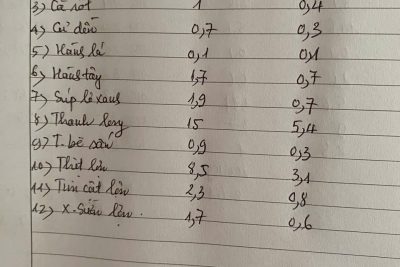 3) Cà rốt 1 0,4
4) Củ dền 0,7 0,3
5) Hành lá 0,1 0,1
6) Hành tây 1,7 0,7
7) Súp lơ xanh 1,9 0,7
8) Thanh long 15 5,4
9) T. bẽ sẵn 0,9 0,3
10) Thịt lợn 8,5 3,1
11) Tim cật lợn 2,3 0,8
12) X. sườn lợn 1,7 0,6